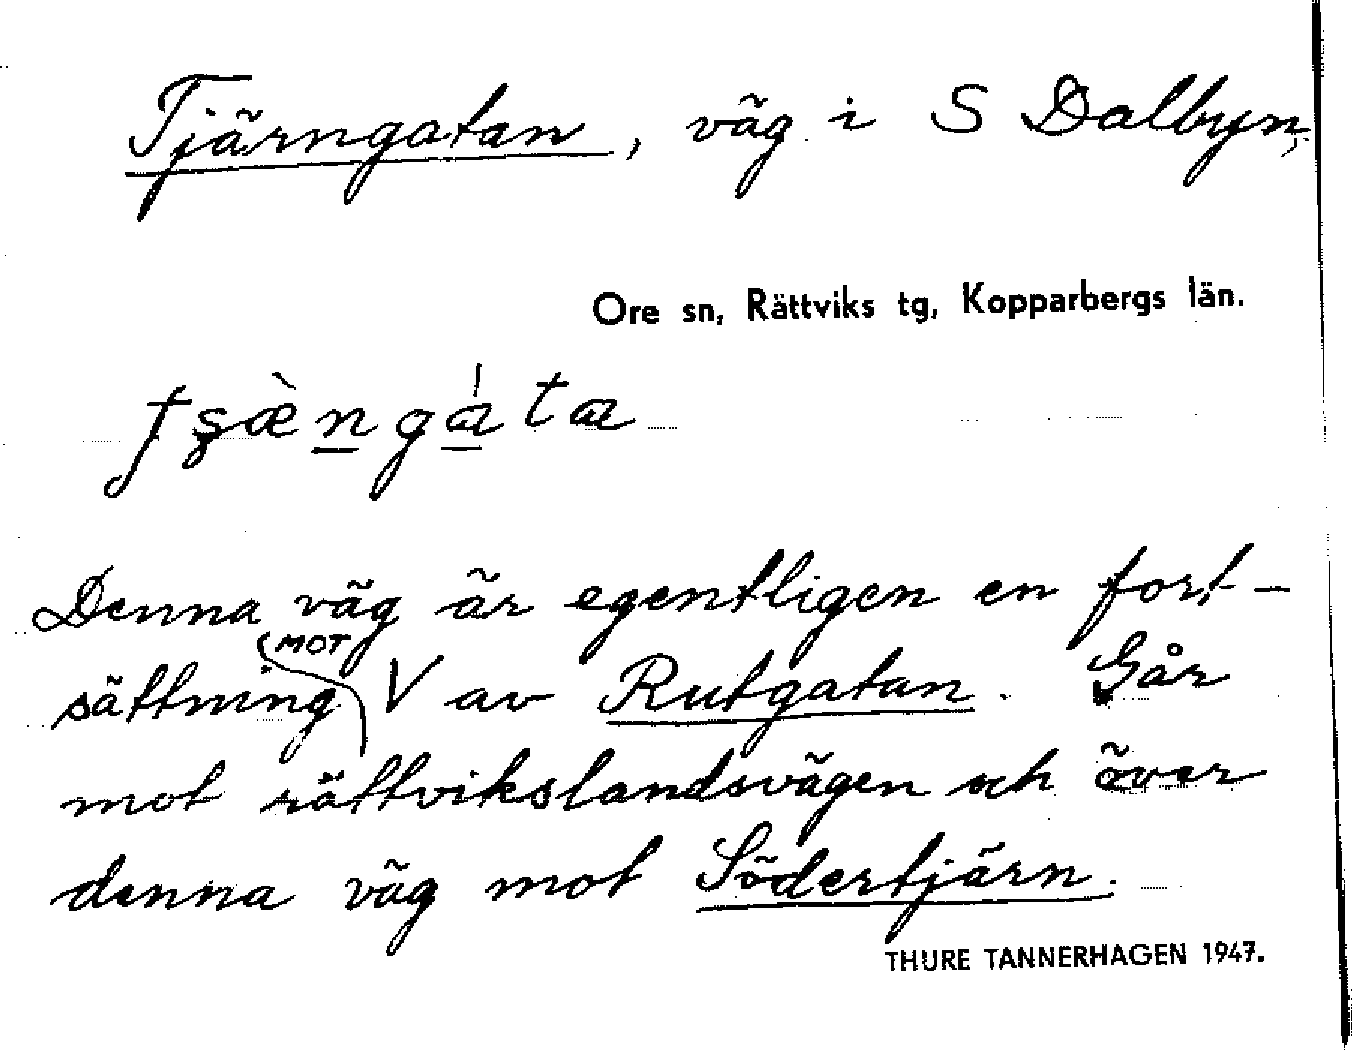 Tjärngatan, väg i S Dalbyn,
Ore sn, Rättviks tg, Kopparbergs län.
Denna väg är egentligen en fort-
sättning MOT V av Rutgatan. Går
mot rättvikslandsvägen och över
denna väg mot Södertjärn.
THURE TANNERHAGEN 1947.